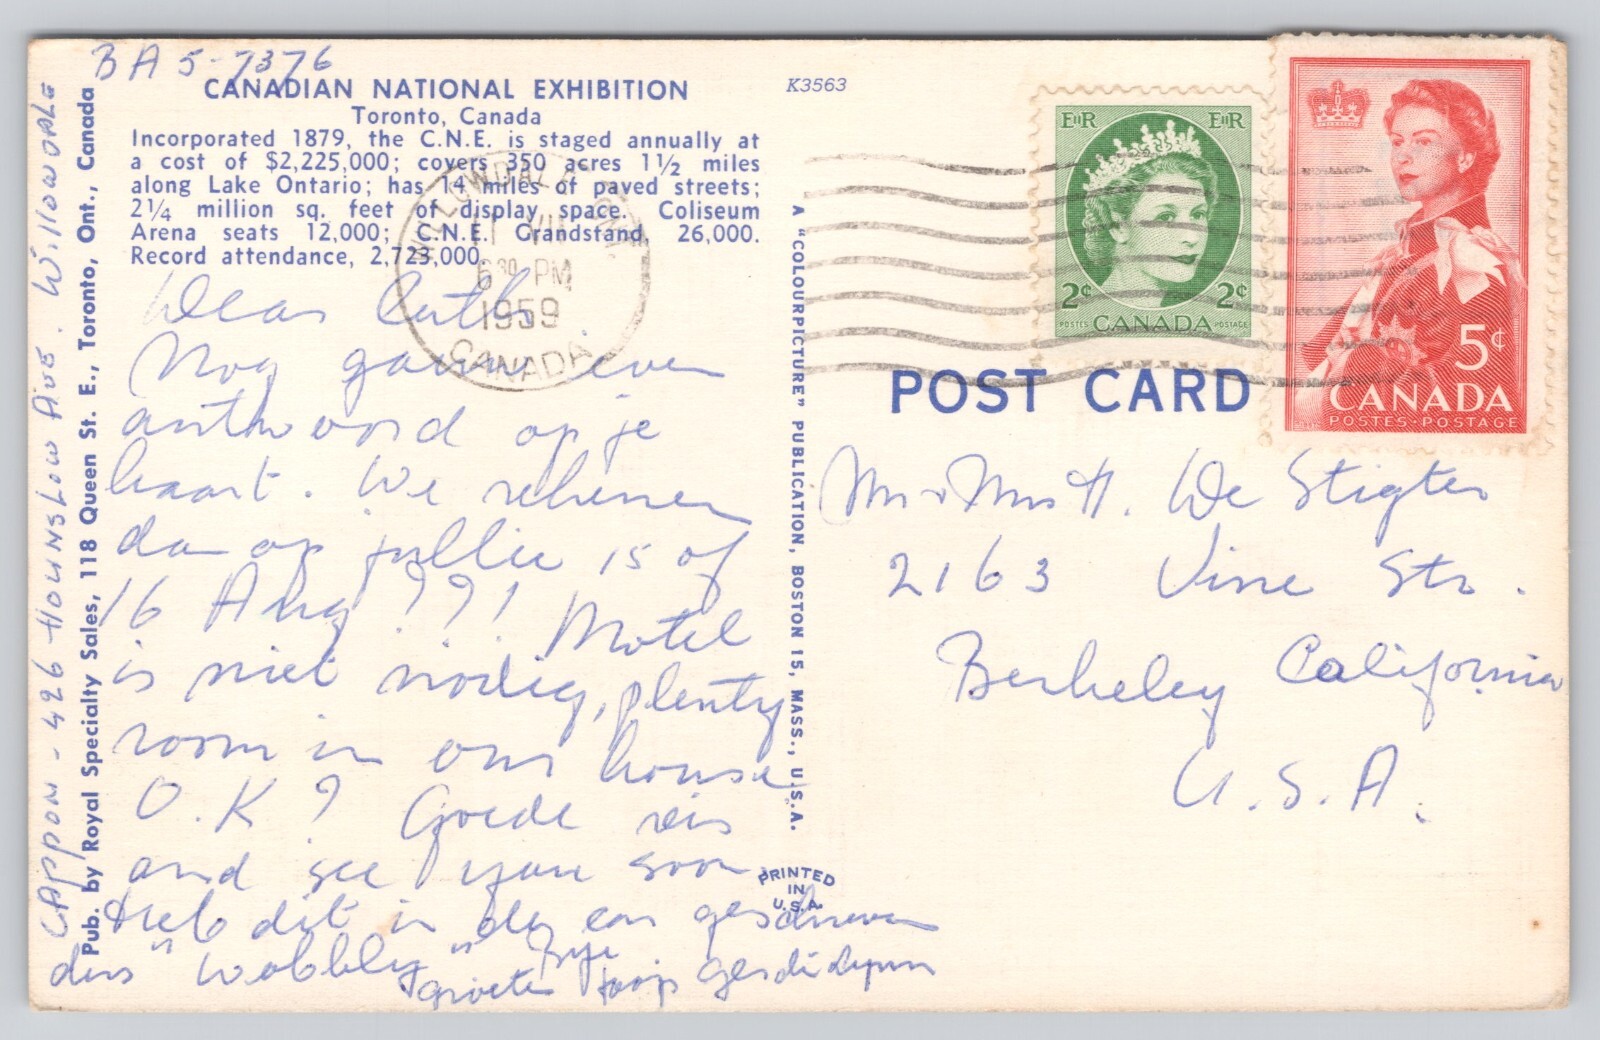 BA 5-7376
CANADIAN NATIONAL EXHIBITION
Toronto, Canada
Incorporated 1879, the C.N.E. is staged annually at
a cost of $2,225,000; covers 350 acres 1½ miles
along Lake Ontario; has 14 miles of paved streets;
2¼ million sq. feet of display space. Coliseum
Arena seats 12,000; C.N.E. Grandstand, 26,000.
Record attendance, 2,723,000.
Dear
Nog gauw even
antwoord op je
kaart. We rekenen
dan op jullie 15 of
16 Aug??! Motel
is niet nodig, plenty
room in our house
O.K? Goede reis
and see you soon
Heb dit in de car geschreven
dus "wobbly"
groeten Joop
CAPPON - 426 HOUNSLOW AVE. WILLOWDALE
Pub. by Royal Specialty Sales, 118 Queen St. E., Toronto, Ont., Canada
WILLOWDALE ONT
VIII
6 30 PM
1959
CANADA
K3563
A "COLOURPICTURE" PUBLICATION, BOSTON 15, MASS., U.S.A.
PRINTED
IN
U.S.A.
EIIR EIIR
2¢ 2¢
POSTES CANADA POSTAGE
5¢
CANADA
POSTES·POSTAGE
POST CARD
Mr & Mrs H. De Stigter
2163 Vine Str.
Berkeley California
U.S.A.